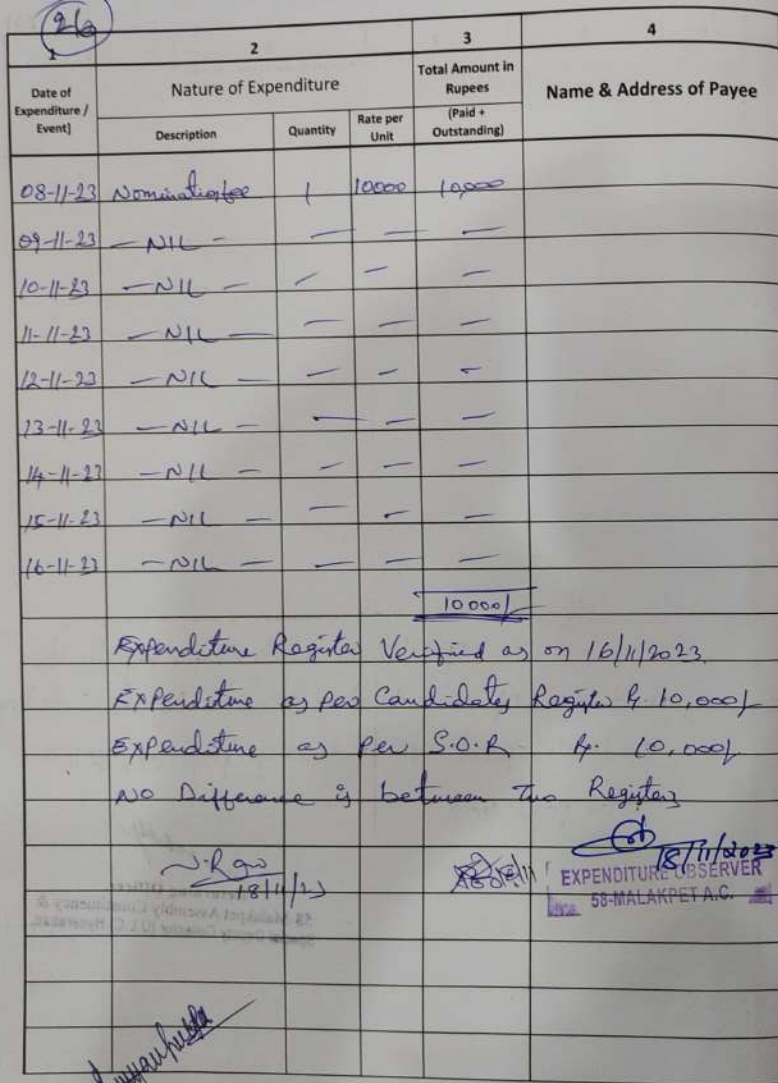 1 2 3 4
Date of Expenditure / Event] Nature of Expenditure Total Amount in Rupees (Paid + Outstanding) Name & Address of Payee
Description Quantity Rate per Unit
08-11-23 Nomination fee 1 10000 10,000
09-11-23 - NIL - - - -
10-11-23 - NIL - - - -
11-11-23 - NIL - - - -
12-11-23 - NIL - - - -
13-11-23 - NIL - - - -
14-11-23 - NIL - - - -
15-11-23 - NIL - - - -
16-11-23 - NIL - - - -
10000/-
Expenditure Register Verified as on 16/11/2023
Expenditure as per Candidates Register Rs. 10,000/-
Expenditure as per S.O.R Rs. 10,000/-
No Difference is between Two Registers
18/11/23
18/11/2023
EXPENDITURE OBSERVER
58-MALAKPET A.C.